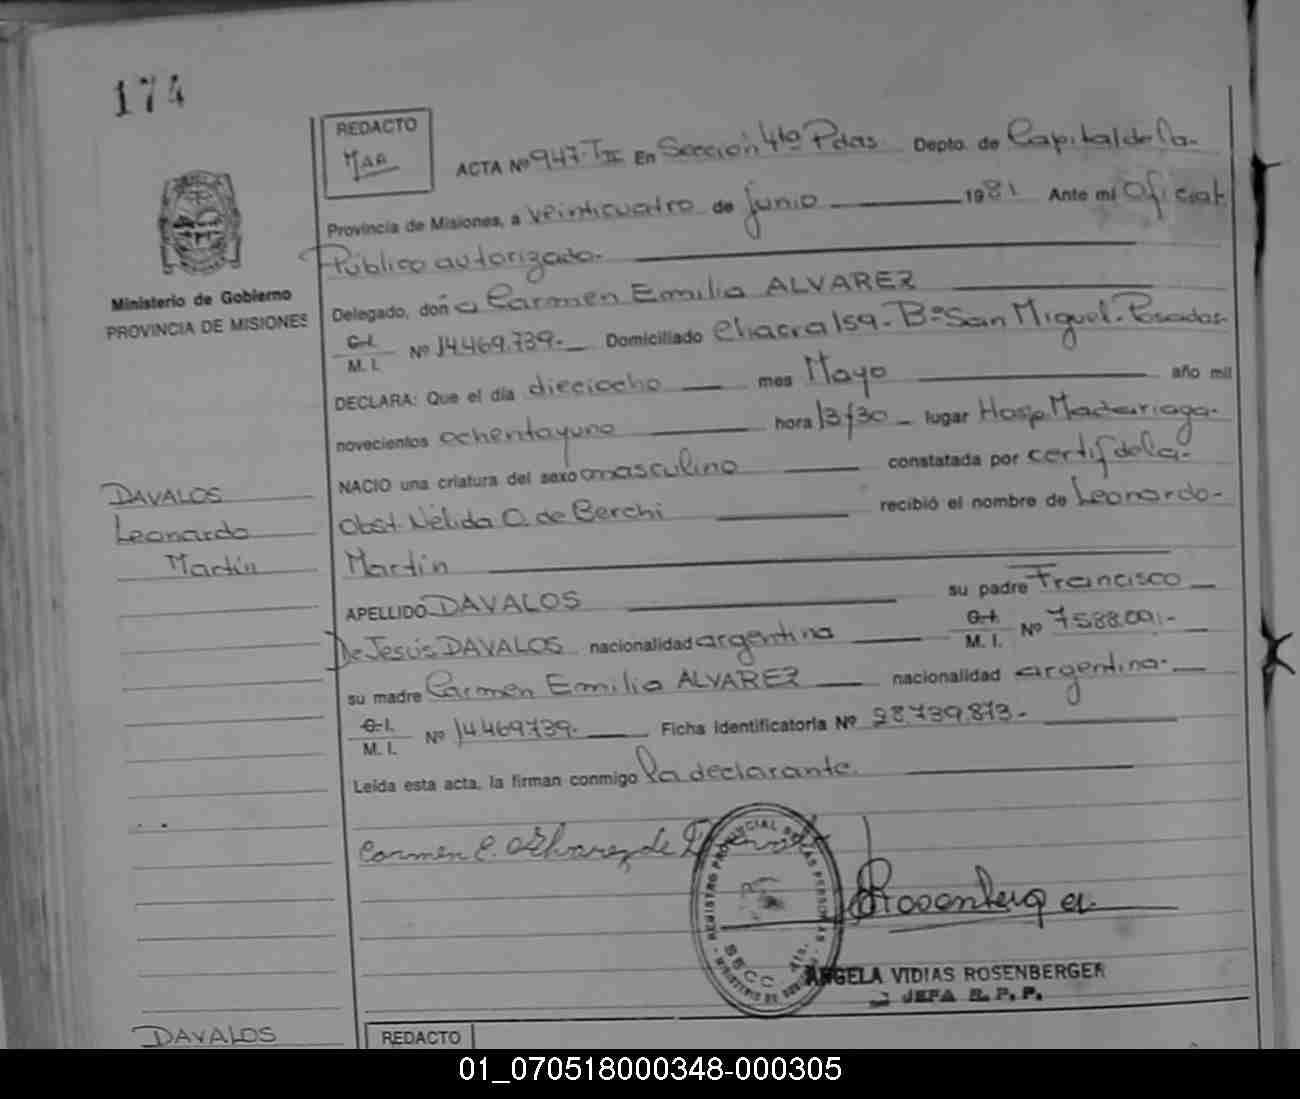 174
REDACTO
MAA
ACTA Nº 947-TII En Sección 4ta Pdas. Depto. de Capital de la-
Provincia de Misiones, a veinticuatro de junio 1981 Ante mí Oficial
Público autorizado.
Ministerio de Gobierno
PROVINCIA DE MISIONES
Delegado, doña Carmen Emilia ALVAREZ
C.I.
M. I. Nº 14.469.739.- Domiciliado Chacra 159-Bº San Miguel-Posadas-
DECLARA: Que el día dieciocho mes Mayo año mil
novecientos ochentayuno hora 13/30 lugar Hosp. Madariaga-
NACIO una criatura del sexo masculino constatada por certif de la-
Obst. Nélida O. de Berchi recibió el nombre de Leonardo-
Martín
DAVALOS
Leonardo
Martín
APELLIDO DAVALOS su padre Francisco
De Jesús DAVALOS nacionalidad argentina C.I.
M. I. Nº 7.588.091.-
su madre Carmen Emilia ALVAREZ nacionalidad argentina.-
C.I.
M. I. Nº 14.469.739.- Ficha identificatoria Nº 28.739.873-
Leída esta acta, la firman conmigo la declarante.
Carmen E. Alvarez de
REGISTRO PROVINCIAL DE LAS PERSONAS
SECC. 4ta.
MINISTERIO DE GOBIERNO
Rosenberger
ANGELA VIDIAS ROSENBERGER
JEFA R. P. P.
DAVALOS
REDACTO
01_070518000348-000305